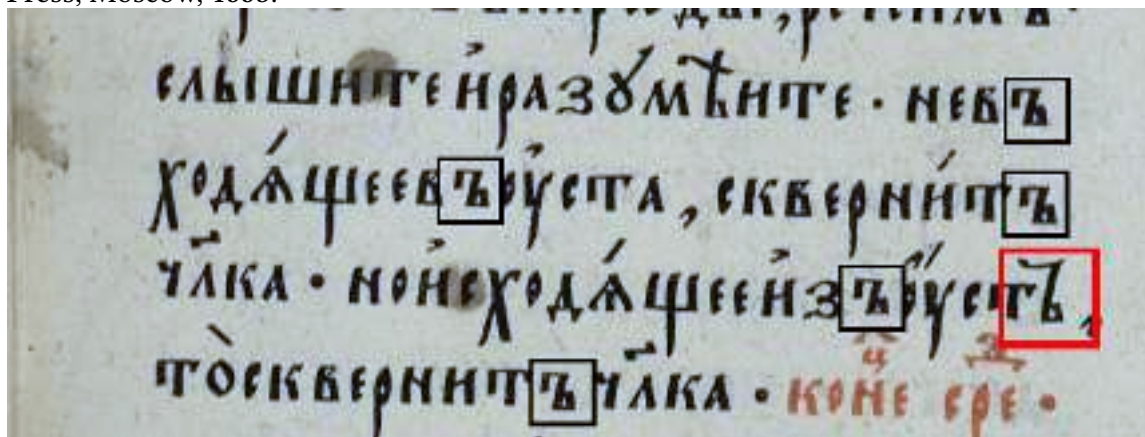 Press, Moscow,
слышитеи҆разꙋмѣите · невъ
ходѧ́щеевъоу҆ста, скверни́тъ
чл҃ка · нои҆сходѧ́щееи҆зъоу҆стъ,
то̀сквернитъчл҃ка · конеⷰ҇ среⷣ ·